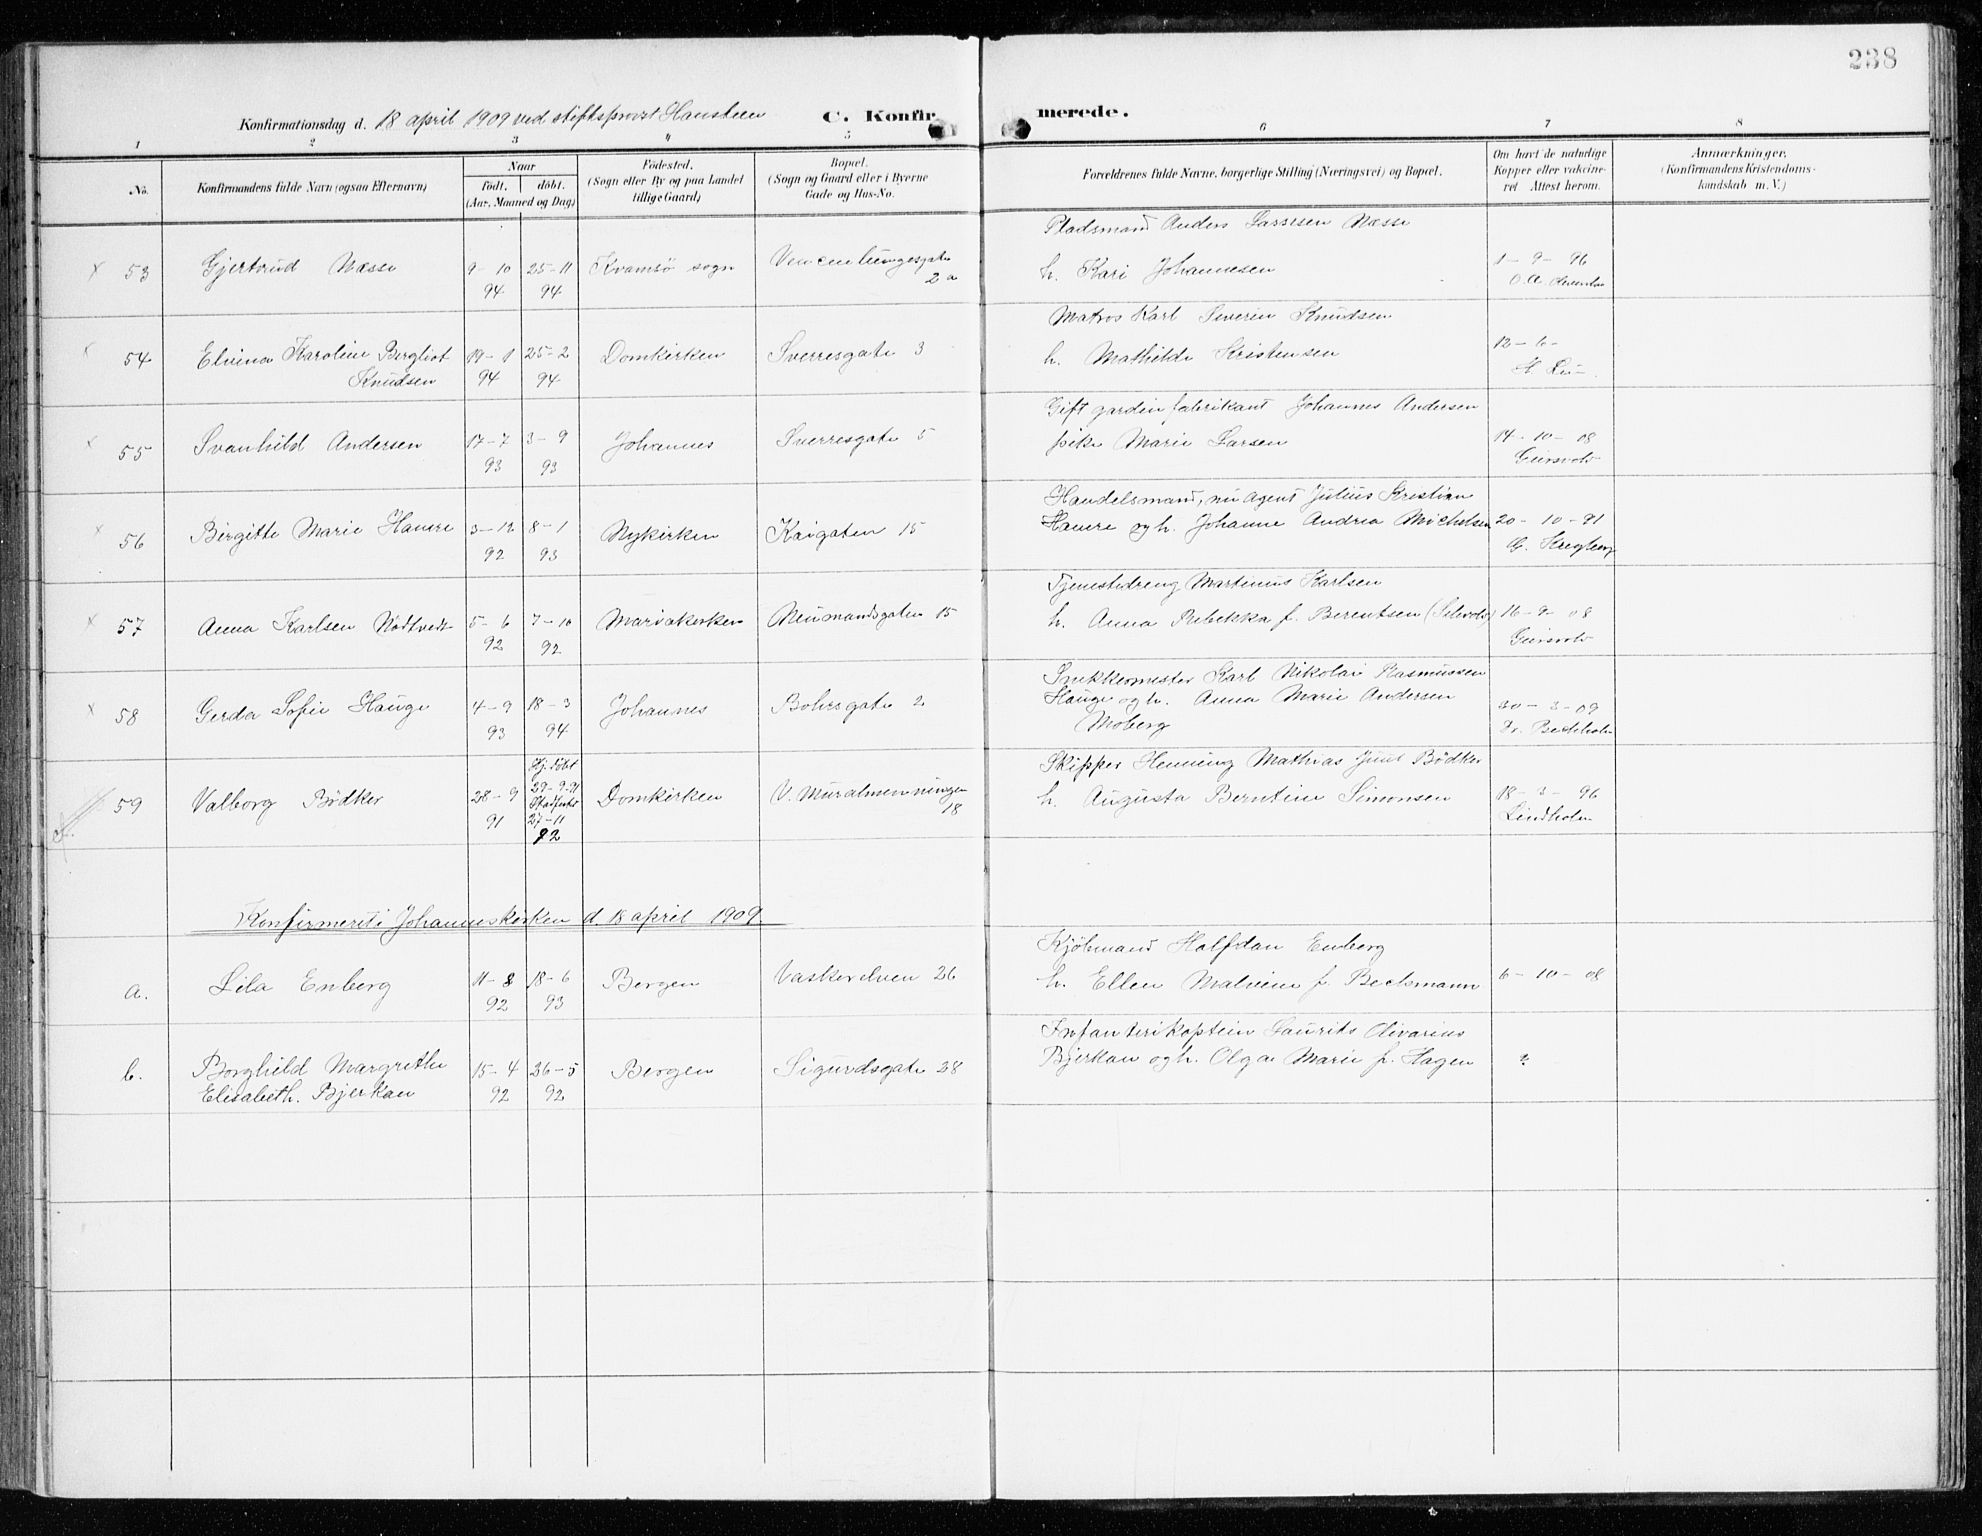 238
Konfirmationsdag d. 18 april 1909 ved stiftsprovst Hansteen C. Konfir merede.
1 2 3 4 5 6 7 8
No. Konfirmandens fulde Navn (ogsaa Efternavn) Naar födt. döbt. (Aar, Maaned og Dag) Födested. (Sogn eller By og paa Landet tillige Gaard) Bopæl. (Sogn og Gaard eller i Byerne Gade og Hus-No. Forældrenes fulde Navne, borgerlige Stilling (Næringsvei) og Bopæl. Om havt de naturlige Kopper eller vakcineret Attest herom. Anmærkninger. (Konfirmandens Kristendomskundskab m. V.)
Pladsmand Anders Lassesen Næsse
x 53 Gjertrud Næsse 9-10 25-11 Kvamsö sogn h. Kari Johannesen 1-9-96
94 94 2 a
Matros Karl Severin Knudsen
x 54 Elvina Karoline Bergliot 19-1 25-2 Domkirken Sverresgate 3 h. Mathilde Kristensen 12-6-
Knudsen 94 94
Gift gardinfabrikant Johannes Andersen
x 55 Svanhild Andersen 17-7 3-9 Johannes Sverresgate 5 pike Marie Larsen 14-10-08
93 93 Geirsvold
Handelsmand, nu Agent Julius Kristian
x 56 Birgitte Marie Hauere 3-12 8-1 Nykirken Kaigaten 15 Hauere og h. Johanne Andrea Michelsen 20-10-91
92 93
Tjenestedreng Martinus Karlsen
x 57 Anna Karlsen Nödtvedt 5-6 7-10 Mariakirken Neumandsgaten 15 h. Anna Rebekka f. Berentsen 16-9-08
92 92 Geirsvold
Snekkermester Karl Nikolai Rasmussen
x 58 Gerda Sofie Hauge 4-9 18-3 Johannes Bohrsgate 2 Hauge og h. Anna Marie Andersen
93 94 Moberg 30-3-09
Skipper Henning Mathias Juul Bödker
59 Valborg Bödker 28-9 Hj. döbt 29-9-91 Domkirken V. Muralmenningen h. Augusta Berntine Simonsen 18-3-96
91 27-11 92 18 Lindholm
Konfirmert i Johanneskirken d. 18 april 1909.
Kjöbmand Halfdan Enberg
a. Lila Enberg 11-8 18-6 Bergen Vaskerelven 26 h. Ellen Malvine f. 6-10-08
92 93
Infanterikaptein Laurits Olivarius
b. Borghild Margrethe 15-4 26-5 Bergen Sigurdsgate 28 Bjerkan og h. Olga Marie f. Hagen ?
Elisabeth Bjerkan 92 92